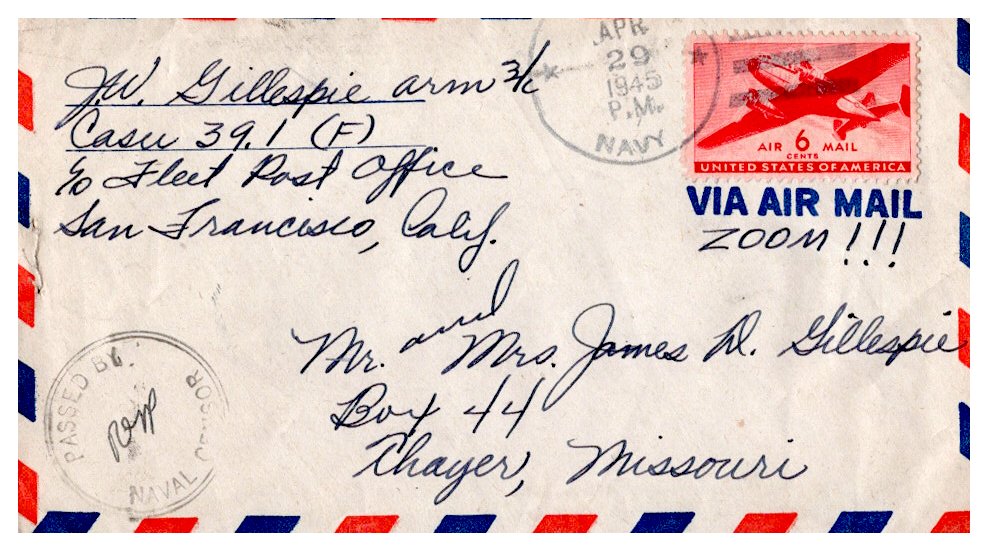 J.W. Gillespie arm 3/c
Casu 39.1 (F)
c/o Fleet Post Office
San Francisco, Calif.
APR
29
1945
P.M.
NAVY
AIR 6 MAIL
CENTS
UNITED STATES OF AMERICA
VIA AIR MAIL
ZOOM!!!
Mr. and Mrs. James D. Gillespie
Box 44
Thayer, Missouri
PASSED BY
NAVAL CENSOR